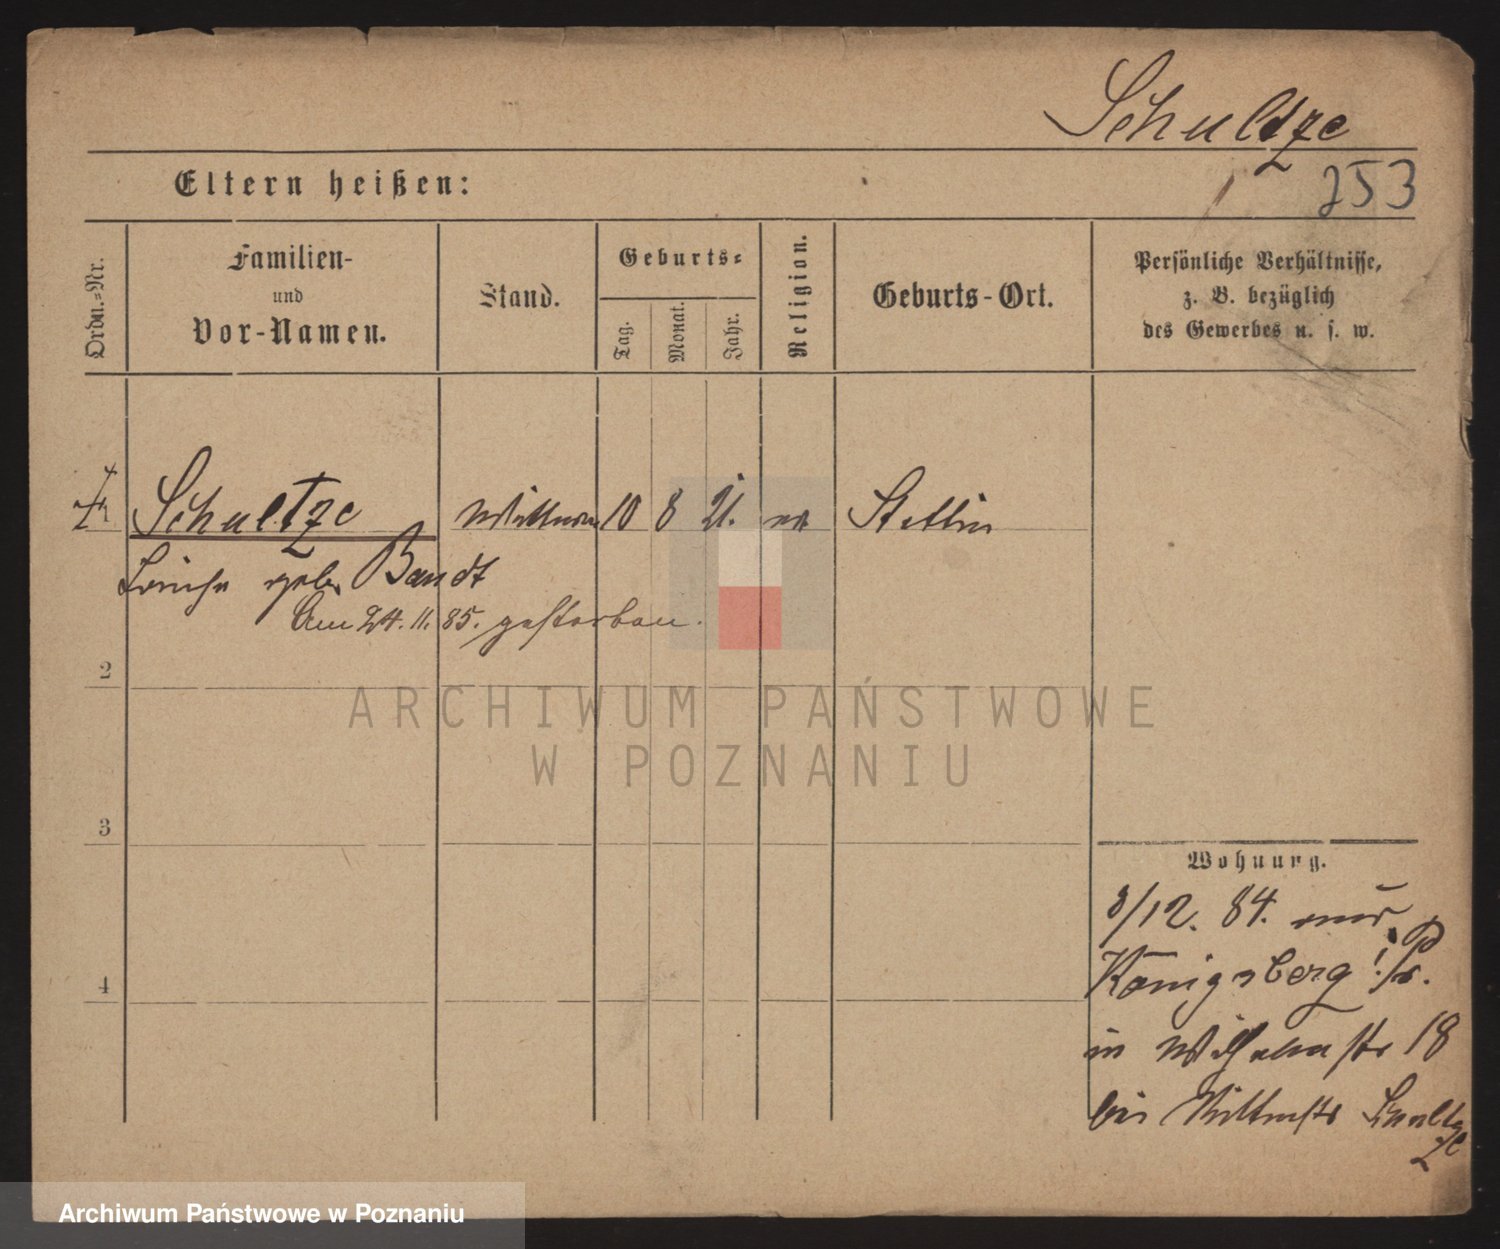 Schultze
253
Eltern heißen:
Ordn.=Nr.
Familien-
und
Vor-Namen.
Stand.
Geburts=
Tag.
Monat.
Jahr.
Religion.
Geburts-Ort.
Persönliche Verhältnisse,
z. B. bezüglich
des Gewerbes u. s. w.
Schultze Wittwe 10 8 21. ev Stettin
Louise geb. Bandt
Am 24. 11. 85. gestorben.
2
3
4
Wohnung.
3/12. 84. aus
Königsberg i/Pr.
in Wilhelmstr 18
bei Schultze
ARCHIWUM PAŃSTWOWE
W POZNANIU
Archiwum Państwowe w Poznaniu